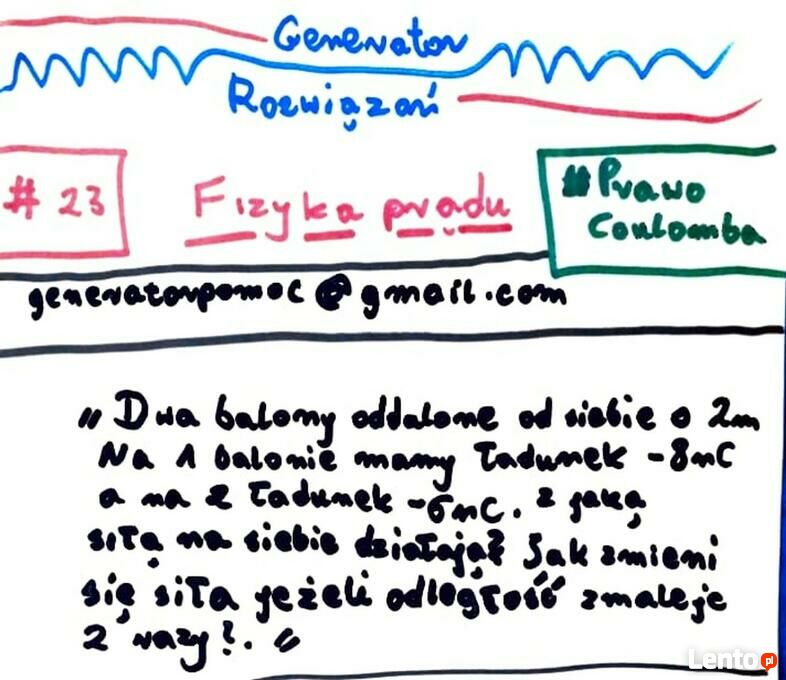 Generator
Rozwiązań
# 23
Fizyka prądu
#Prawo
Coulomba
generatorpomoc@gmail.com
„Dwa balony oddalone od siebie o 2m
Na 1 balonie mamy ładunek -8nC
a na 2 ładunek -6nC. Z jaką
siłą na siebie działają? Jak zmieni
się siła jeżeli odległość zmaleje
2 razy?."
Lento.pl